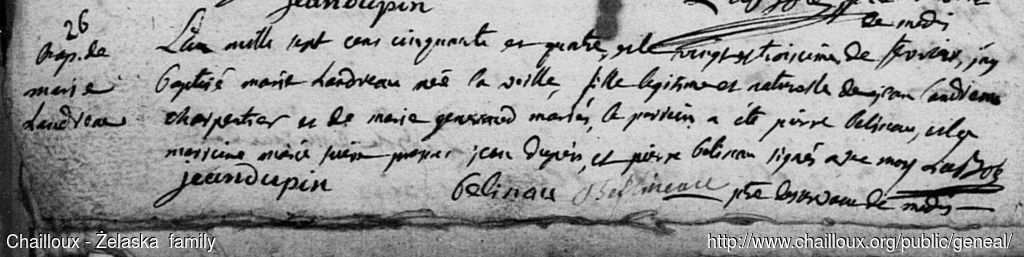 jeandupin
de medis
26
Bap. de
marie
Landreau
L'an mille sept cens cinquante et quatre, et le vingt et troisieme de fevrier, j'ay
baptisé marie Landreau née la veille, fille legitime et naturelle de jean Landreau
charpentier et de marie mariés, le parein a été pierre belineau, et la
mareine marie jean Dupin, et pierre belineau signés avec moy
jeandupin belinau Belineau ptre de medis
Chailloux - Żelaska family
http://www.chailloux.org/public/geneal/